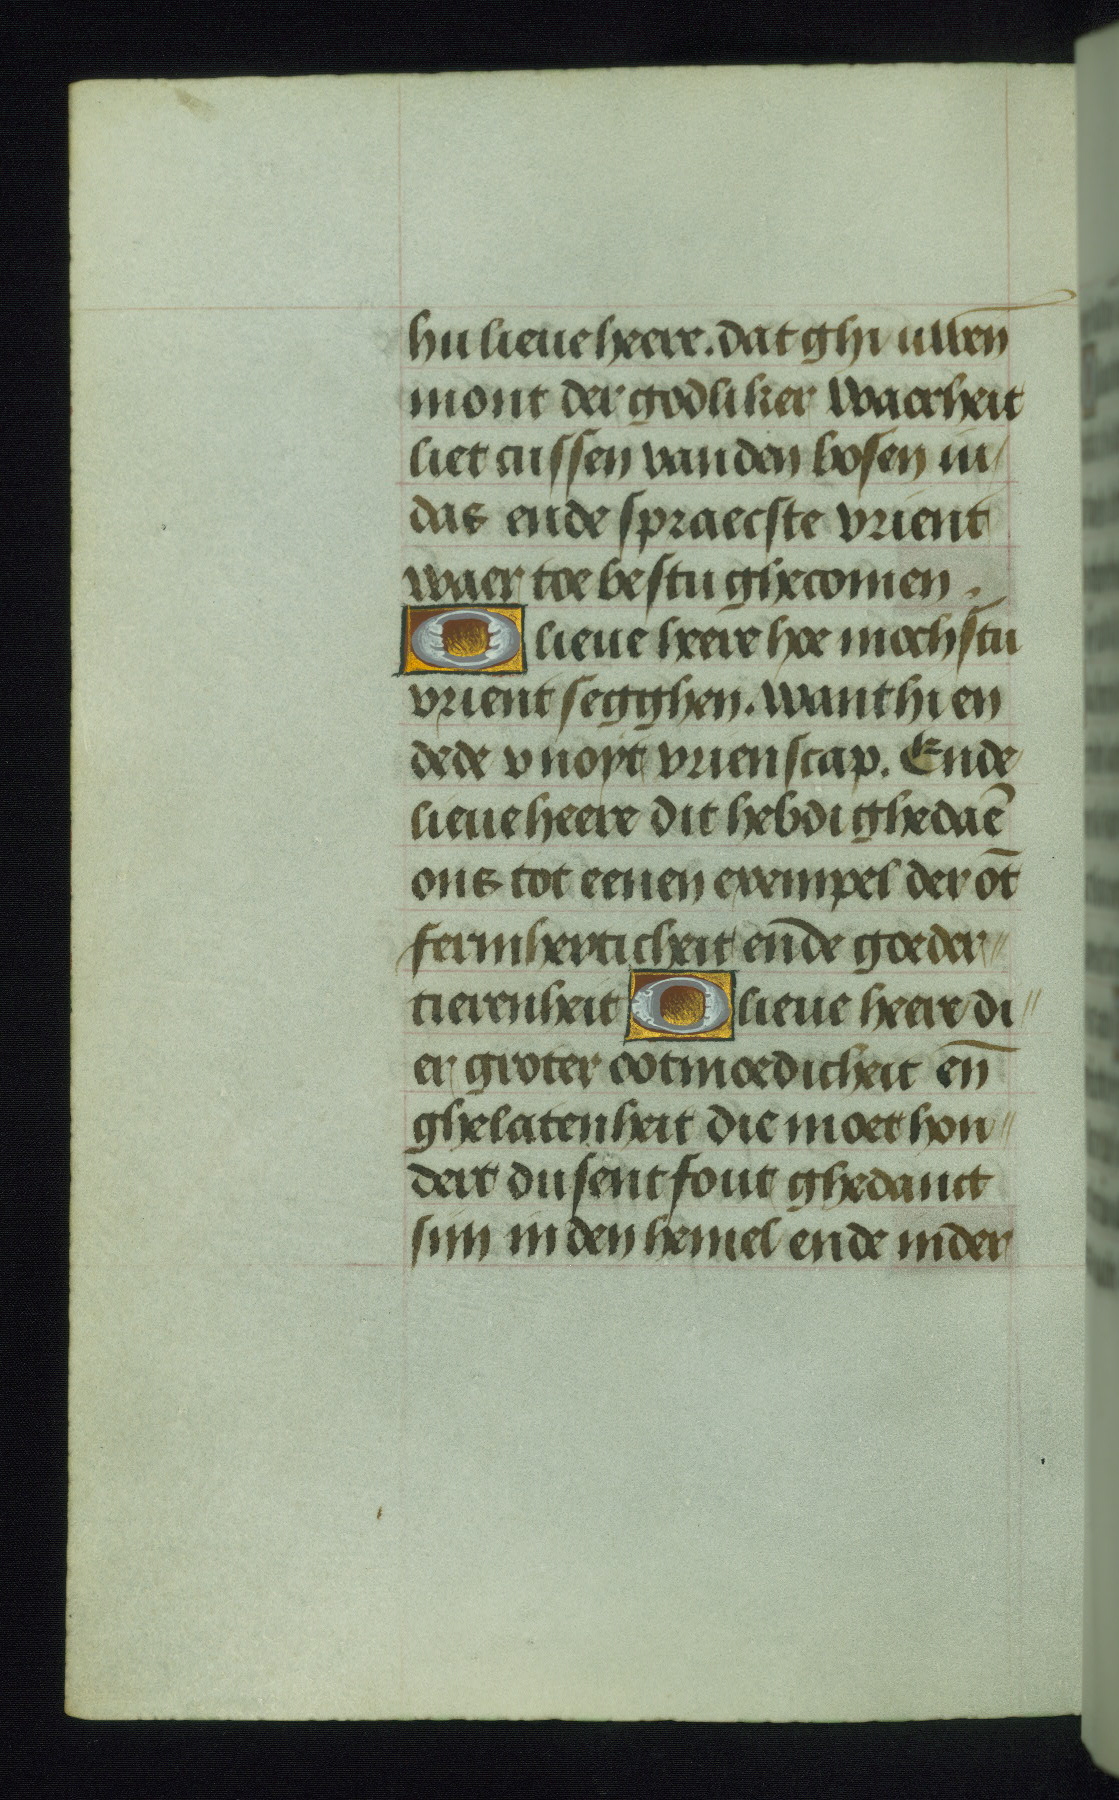 hu lieue heere. dat ghi uwen̄
mont der godliker waerheit
liet cussen van den bosen iu/
das ende spraecste vrient
waer toe bestu ghecomen.
O lieue heere hoe mochstu
vrient segghen. want hi en
dede v noyt vrienscap. Ende
lieue heere dit hebdi ghedaē
ons tot eenen exempel der ōt
fermherticheit ende goeder//
tierenheit O lieue heere di//
er groter ootmoedicheit en̄
ghelatenheit die moet hon//
dert dusent fout ghedanct
sijn in den hemel ende in der